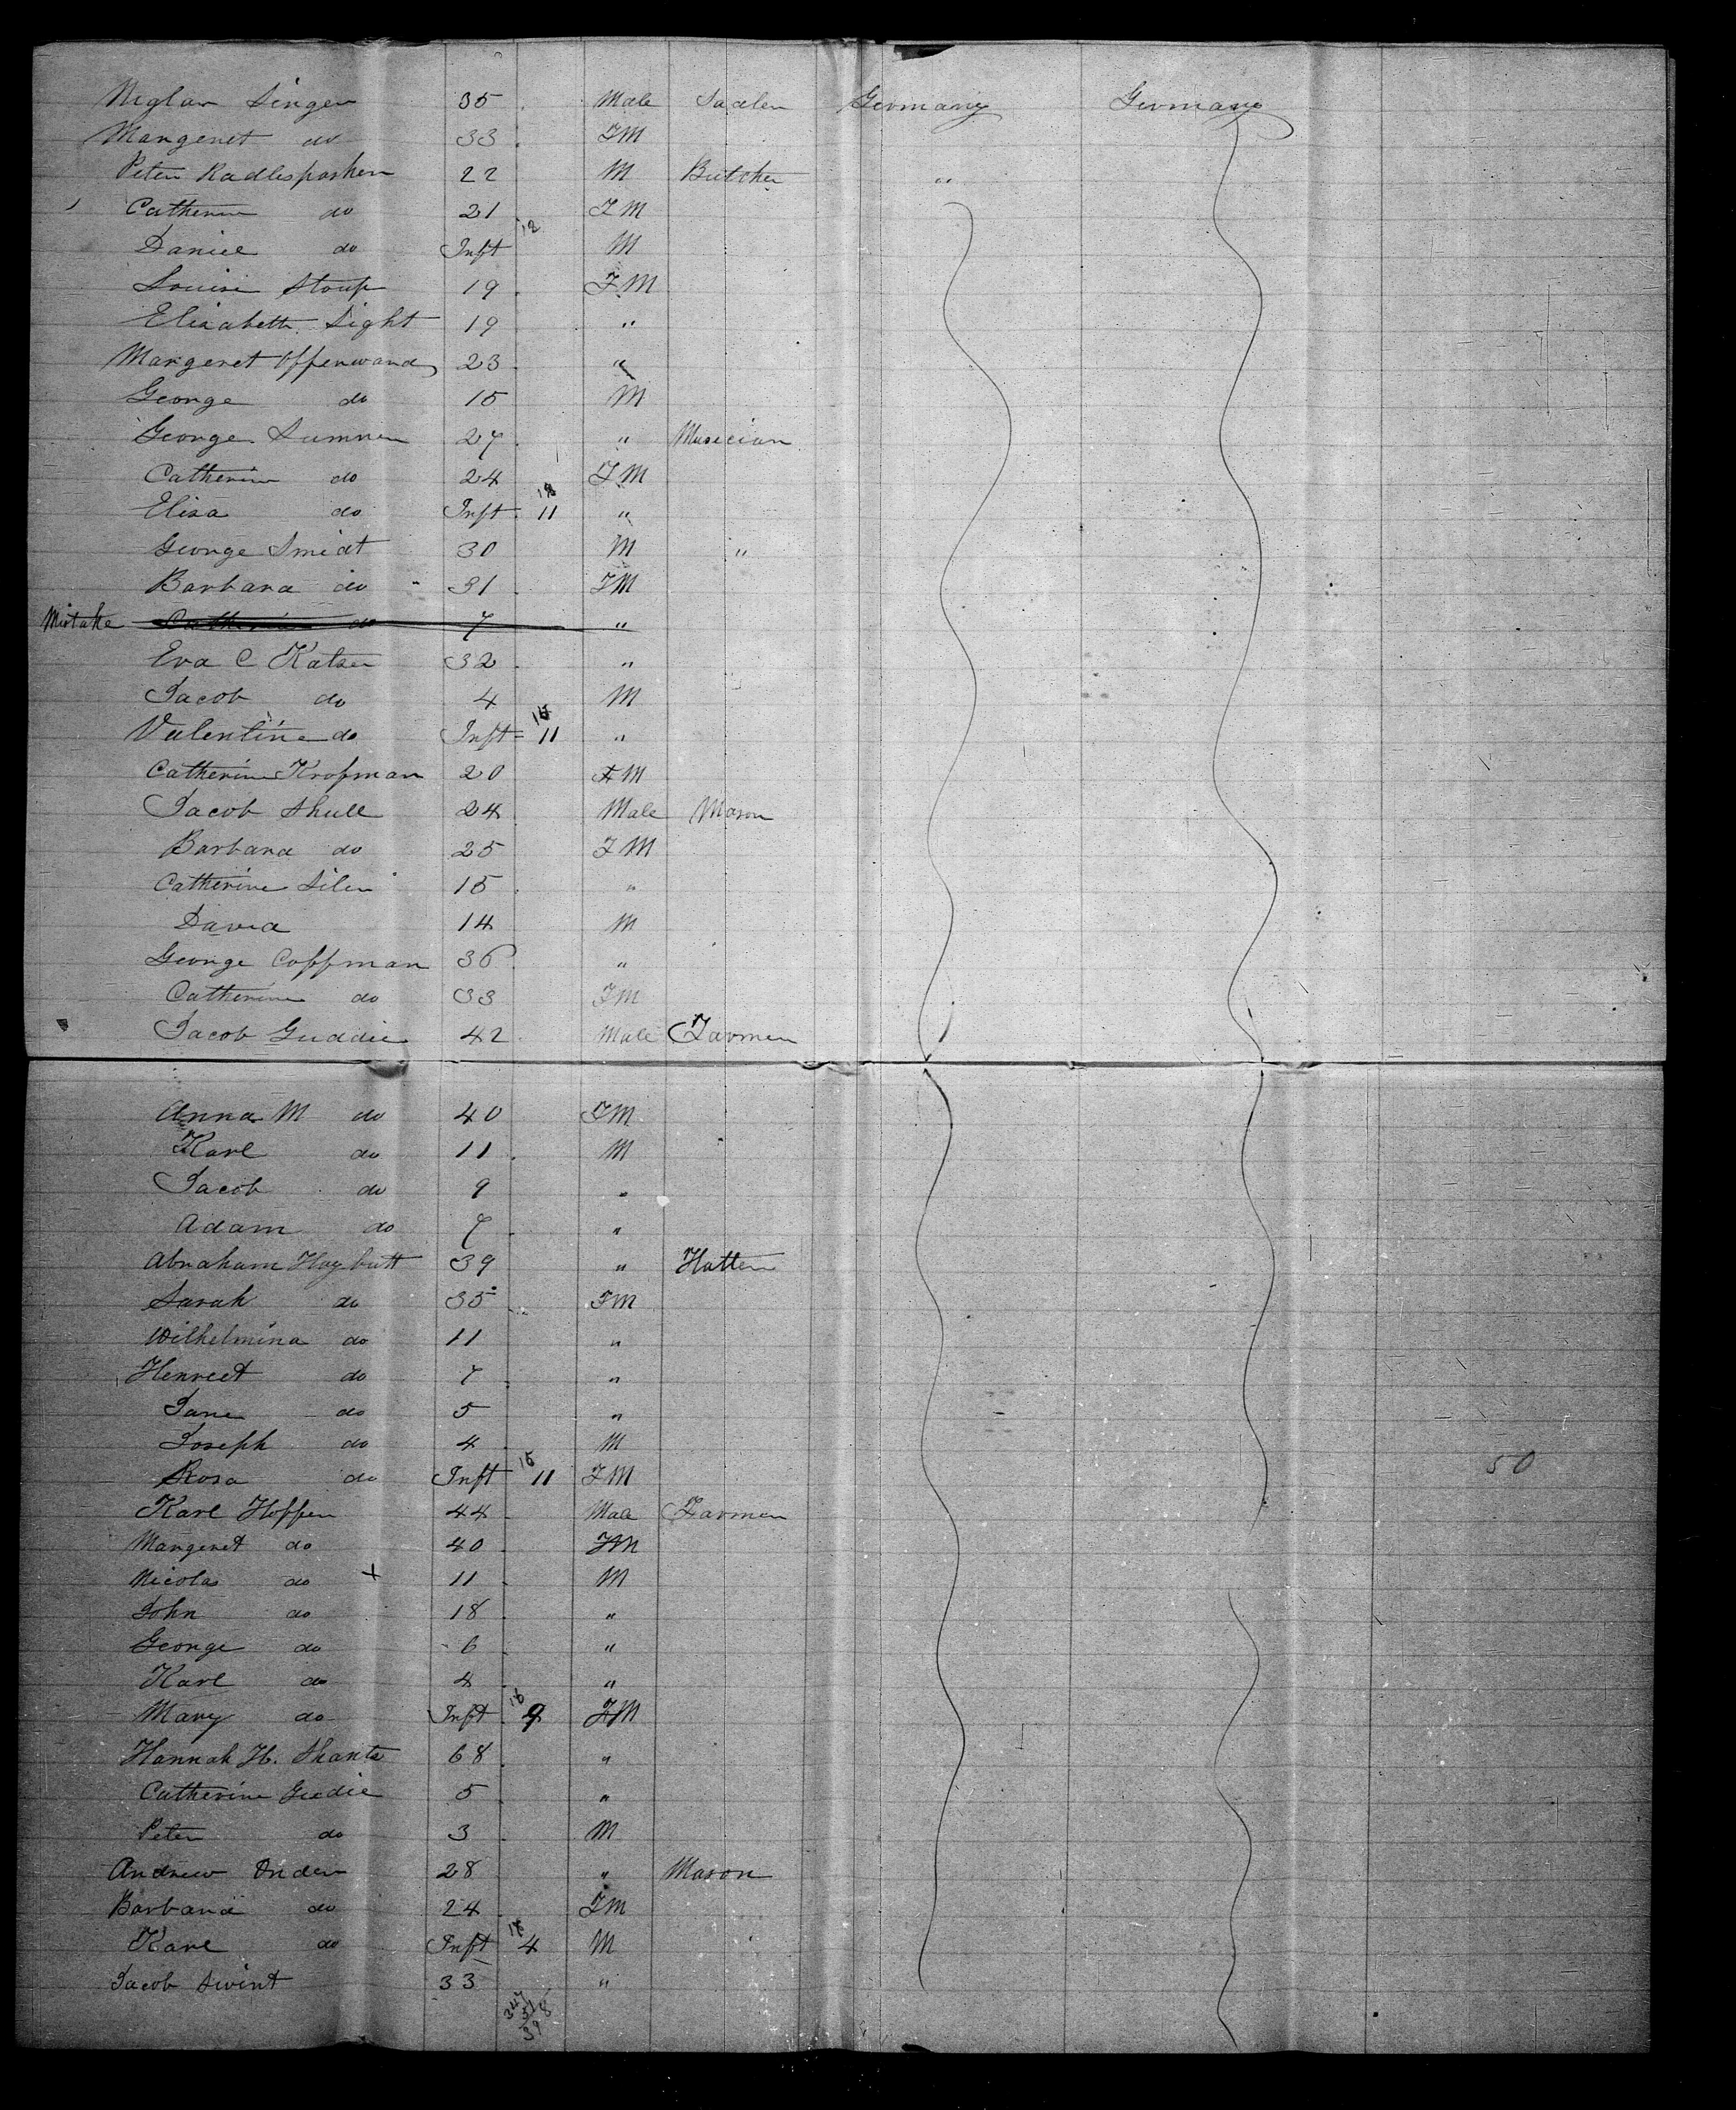 Niglar Singer 35 Male Sadler Germany Germany
Margeret do 33 FM
Peter Radlesparker 22 M Butcher "
Catherin do 21 FM
Daniel do Inft 12 M
Louisa Stoup 19 FM
Elisabeth Sight 19 "
Margeret Offenwand 23 "
George do 15 M
George Sumner 27 " Musecian
Catherin do 24 FM
Elisa do Inft 11 "
George Smidt 30 M "
Barbara do 31 FM
Mistake Catherin do 7 "
Eva C Katser 32 "
Jacob do 4 M
Valentine do Inft 11 "
Catherine Krofman 20 FM
Jacob Shull 24 Male Mason
Barbara do 25 FM
Catherine Siler 15 "
David 14 M
George Coffman 36 "
Catherine do 33 FM
Jacob Guddie 42 Male Farmer
Anna M do 40 FM
Karl do 11 M
Jacob do 9 "
Adam do 7 "
Abraham Haybutt 39 " Hatter
Sarah do 35 FM
Wilhelmina do 11 "
Henreet do 7 "
Jane do 5 "
Joseph do 4 M
Rosa do Inft 11 FM 50
Karl Hoffer 44 Male Farmer
Margeret do 40 FM
Nicolas do x 11 M
John do 18 "
George do 6 "
Karl do 4 "
Mary do Inft 9 FM
Hannah H. Shants 68 "
Catherine Gudie 5 "
Peter do 3 M
Andrew Order 28 " Mason
Barbara do 24 FM
Karl do Inft 4 M
Jacob Swint 33 "
347
51
398